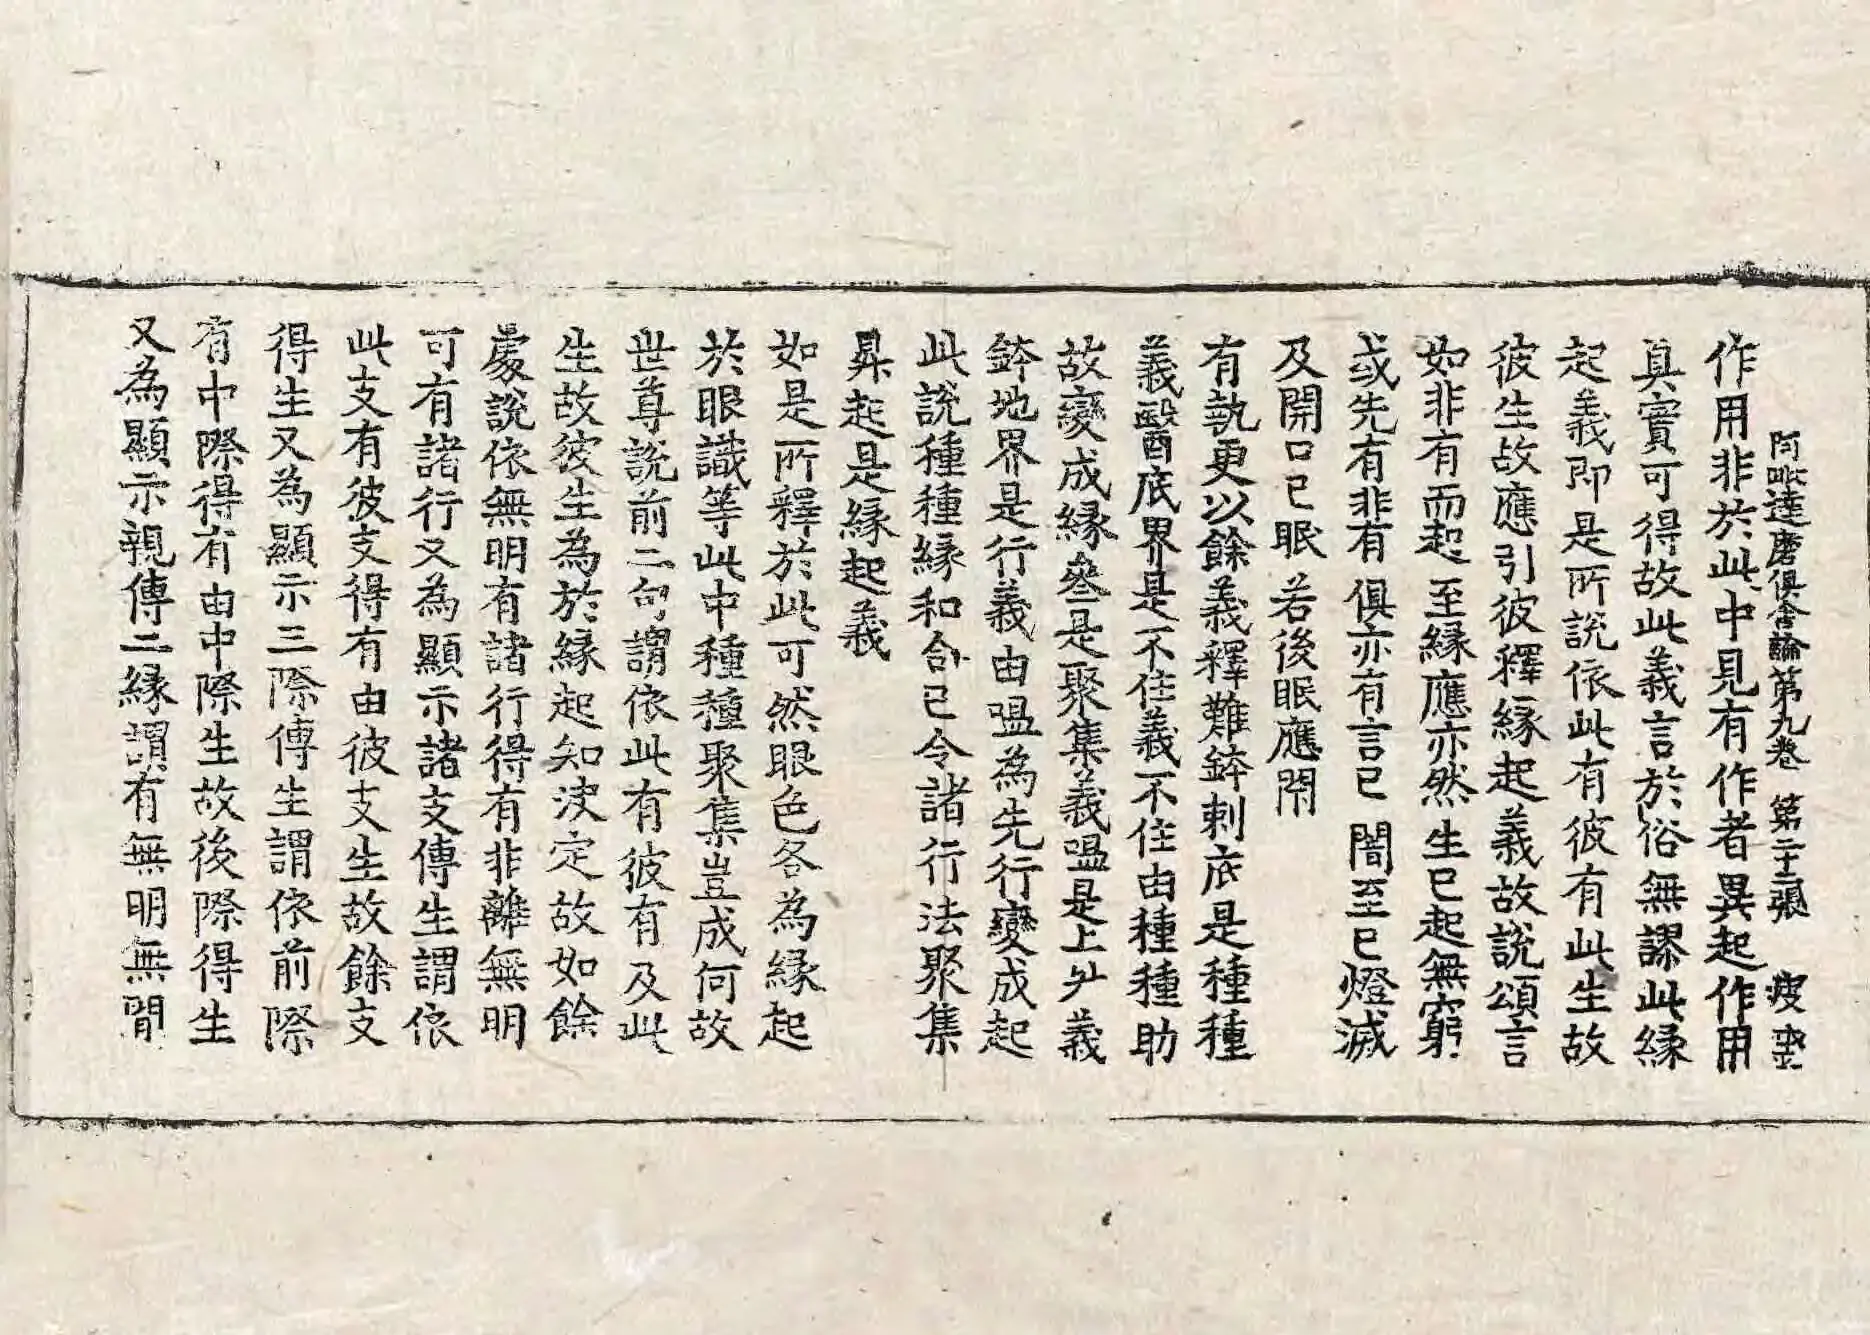 阿毗達磨俱舍論第九卷　第二十二張　疲
作用非於此中見有作者異起作用
真實可得故此義言於俗無謬此緣
起義即是所說依此有彼有此生故
彼生故應引彼釋緣起義故說頌言
如非有而起　至緣應亦然　生已起無窮
或先有非有　俱亦有言已　闇至已燈滅
及開口已眠　若後眠應閇
有執更以餘義釋難鉢剌底是種種
義醫底界是不住義不住由種種助
故變成緣參是聚集義嗢是上升義
鉢地界是行義由嗢為先行變成起
此說種種緣和合已令諸行法聚集
昇起是緣起義
如是所釋於此可然眼色各為緣起
於眼識等此中種種聚集豈成何故
世尊說前二句謂依此有彼有及此
生故彼生為於緣起知決定故如餘
處說依無明有諸行得有非離無明
可有諸行又為顯示諸支傳生謂依
此支有彼支得有由彼支生故餘支
得生又為顯示三際傳生謂依前際
有中際得有由中際生故後際得生
又為顯示親傳二緣謂有無明無閒